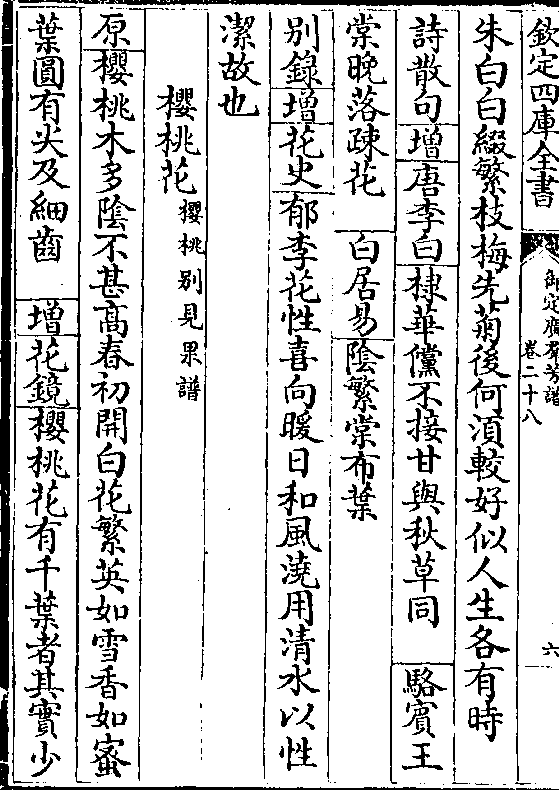 欽定四庫全書
御定廣羣芳譜
卷二十八
六
朱白白綴繁枝梅先菊後何湏較好似人生各有時
詩散句增唐李白棣華儻不接甘與秋草同　駱賓王
棠晚落疎花　白居易陰繁棠布葉
別錄增花史郁李花性喜向暖日和風澆用清水以性
潔故也
櫻桃花櫻桃別見果譜
原櫻桃木多陰不甚高春初開白花繁英如雪香如蜜
葉圓有尖及細齒　增花鏡櫻桃花有千葉者其實少